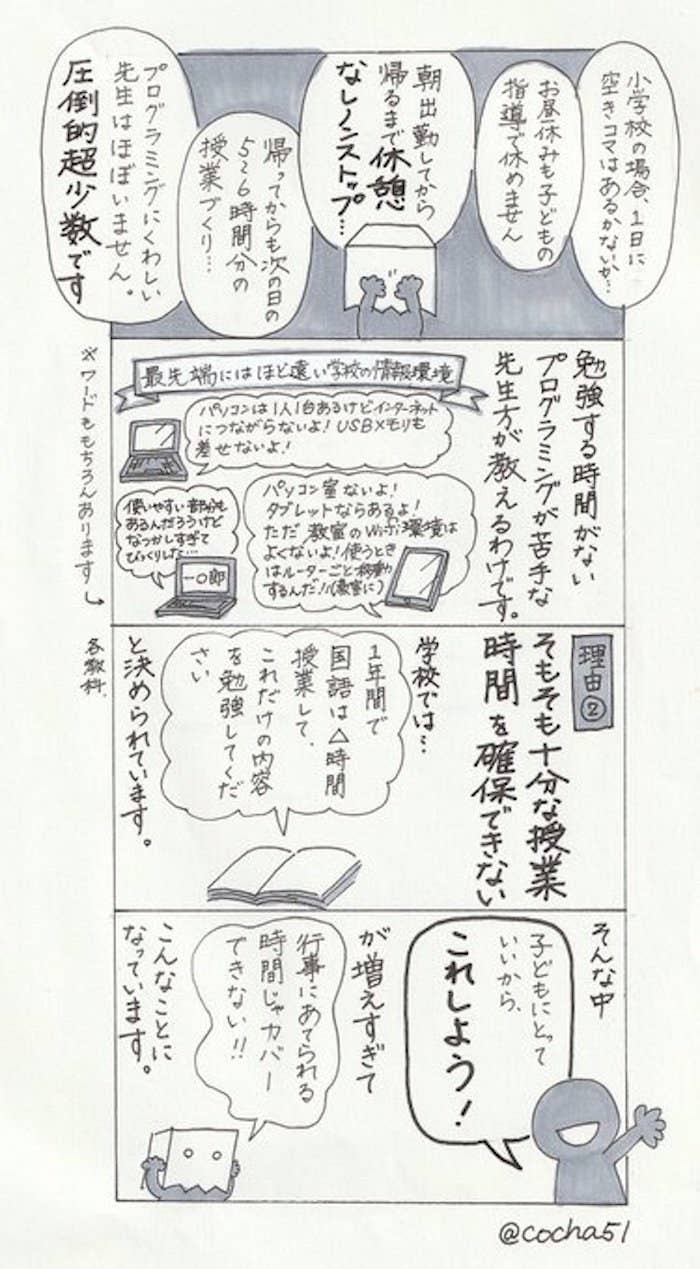 小学校の場合、1日に
空きコマはあるかないか…
お昼休みも子どもの
指導で休めません
朝出勤してから
帰るまで休憩
なしノンストップ…
帰ってからも次の日の
5~6時間分の
授業づくり…
プログラミングにくわしい
先生はほぼいません。
圧倒的超少数です
勉強する時間がない
プログラミングが苦手な
先生方が教えるわけです。
最先端にはほど遠い学校の情報環境
パソコンは1人1台あるけどインターネット
につながらないよ!USBメモリも
差せないよ!
パソコン室ないよ!
タブレットならあるよ!
ただ教室のWi-Fi環境は
よくないよ!使うとき
はルーターごと移動
するんだ!(教室に)
使いやすい部分も
あるんだろうけど
なつかしすぎて
びっくりした…
一〇郎
※ワードももちろんあります
理由②
そもそも十分な授業
時間を確保できない
学校では…
1年間で
国語は△時間
授業して、
これだけの内容
を勉強してくだ
さい
と決められています。
各教科
そんな中
子どもにとって
いいから、
これしよう!
が増えすぎて
行事にあてられる
時間じゃカバー
できない!!
こんなことに
なっています。
@cocha51